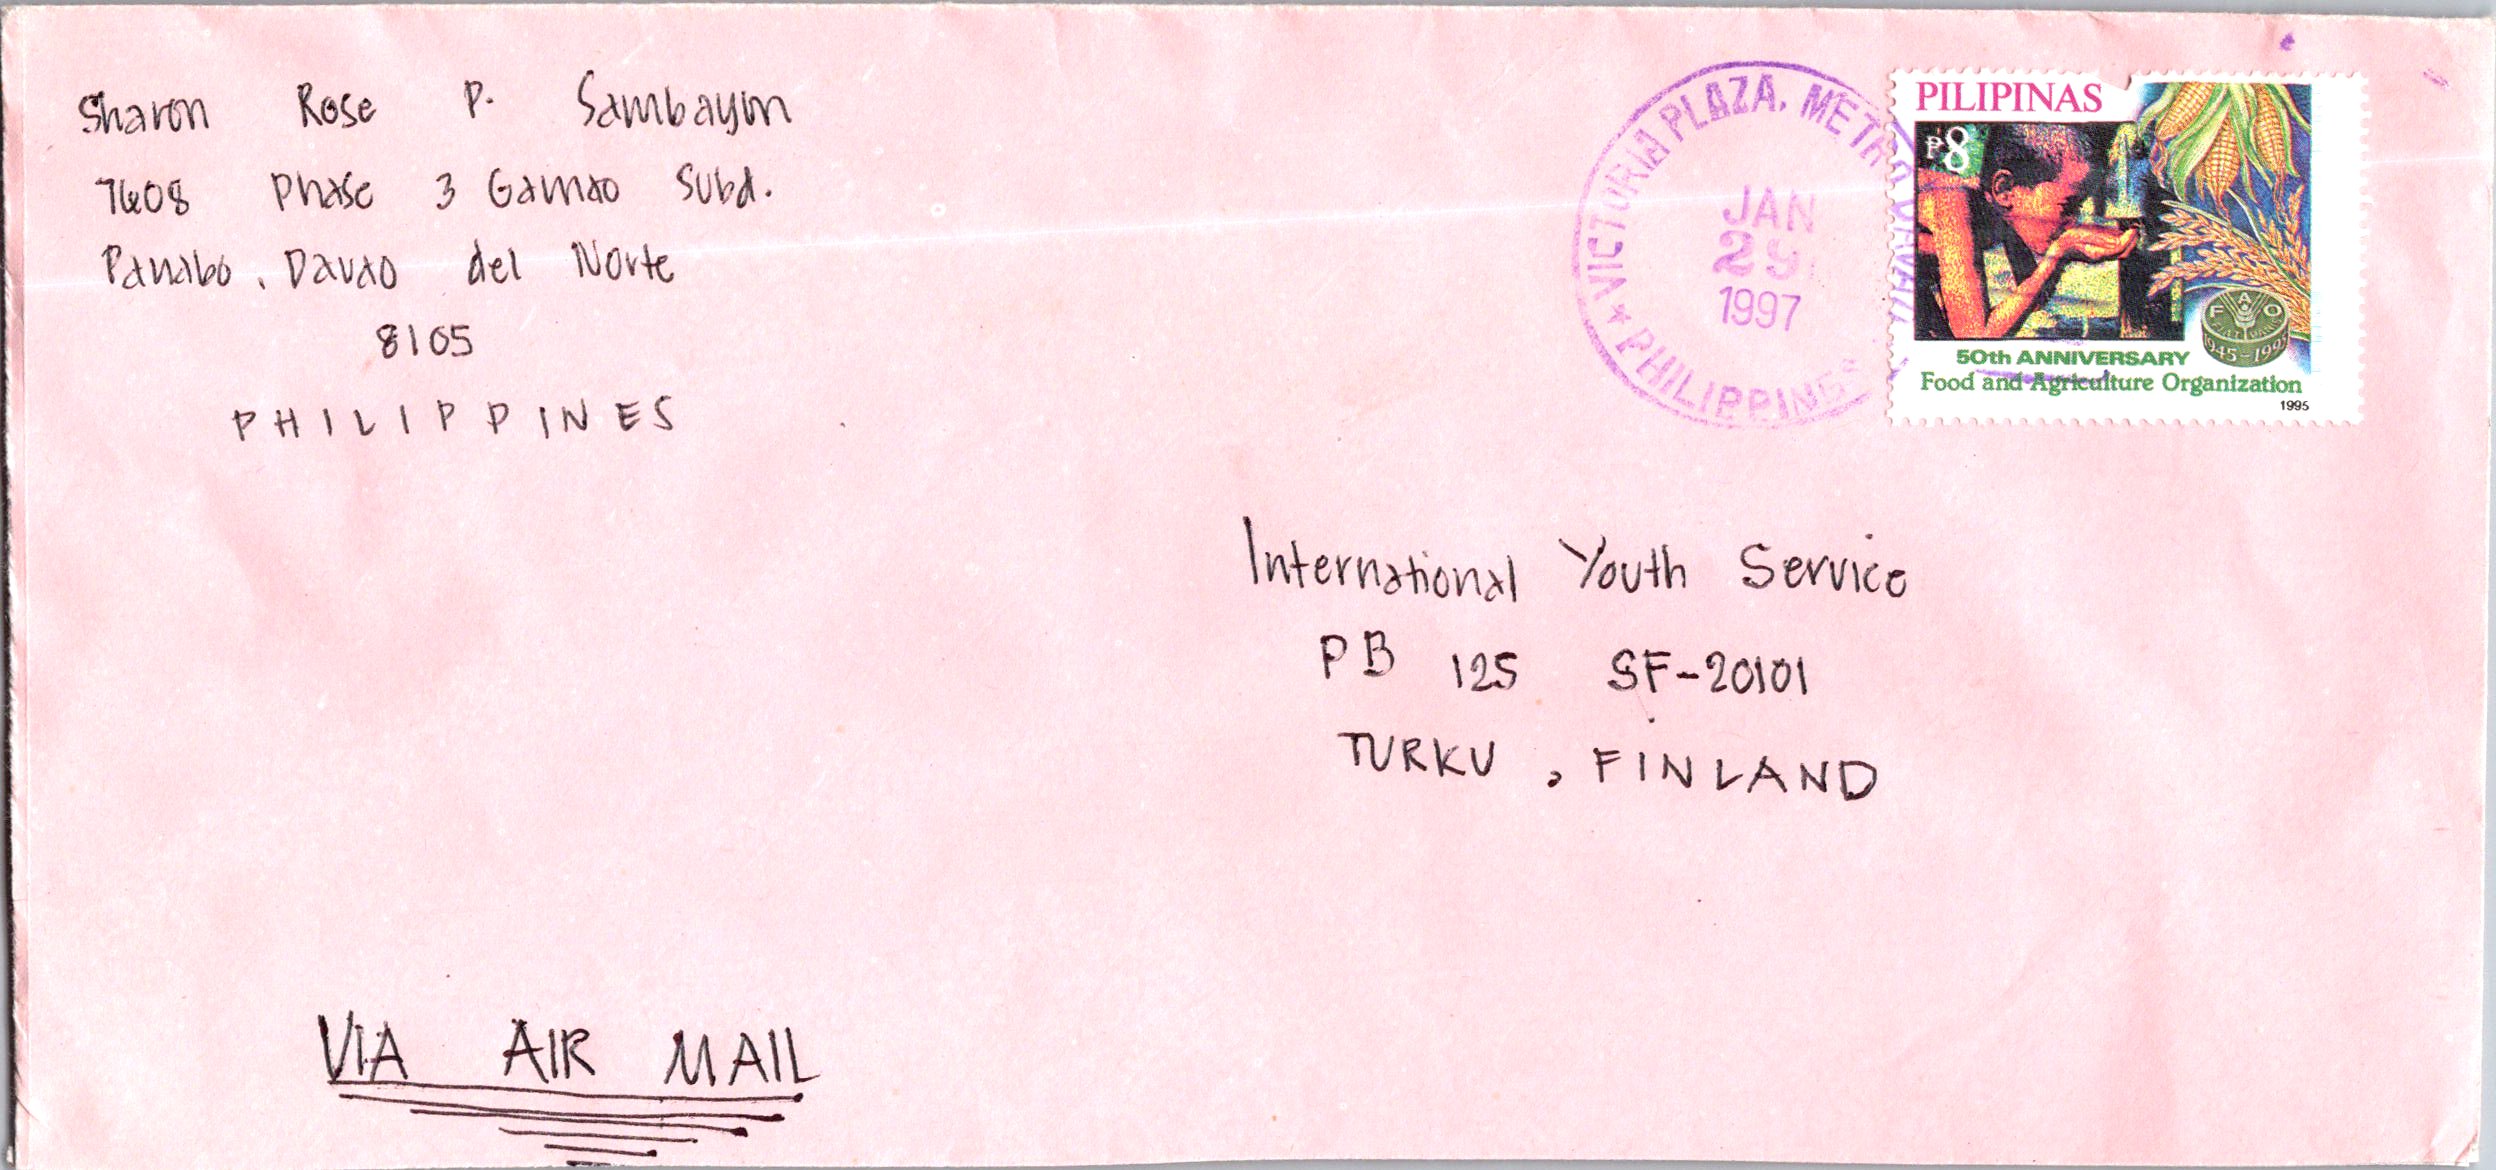 Sharon Rose P. Sambayon
7608 Phase 3 Gamao Subd.
Panabo, Davao del Norte
8105
PHILIPPINES
VICTORIA PLAZA, METRO DAVAO
JAN
29
1997
★ PHILIPPINES
PILIPINAS
P8
FAO
FIAT PANIS
1945-1995
50th ANNIVERSARY
Food and Agriculture Organization
1995
International Youth Service
PB 125 SF-20101
TURKU, FINLAND
VIA AIR MAIL